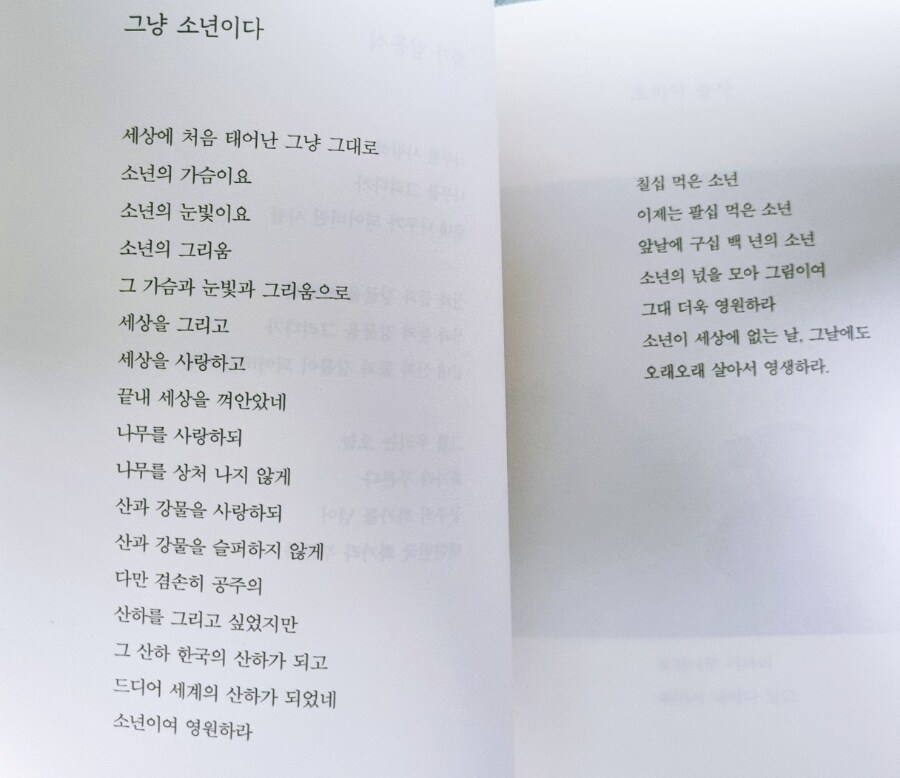 그냥 소년이다
세상에 처음 태어난 그냥 그대로
소년의 가슴이요
소년의 눈빛이요
소년의 그리움
그 가슴과 눈빛과 그리움으로
세상을 그리고
세상을 사랑하고
끝내 세상을 껴안았네
나무를 사랑하되
나무를 상처 나지 않게
산과 강물을 사랑하되
산과 강물을 슬퍼하지 않게
다만 겸손히 공주의
산하를 그리고 싶었지만
그 산하 한국의 산하가 되고
드디어 세계의 산하가 되었네
소년이여 영원하라
칠십 먹은 소년
이제는 팔십 먹은 소년
앞날에 구십 백 년의 소년
소년의 넋을 모아 그림이여
그대 더욱 영원하라
소년이 세상에 없는 날, 그날에도
오래오래 살아서 영생하라.